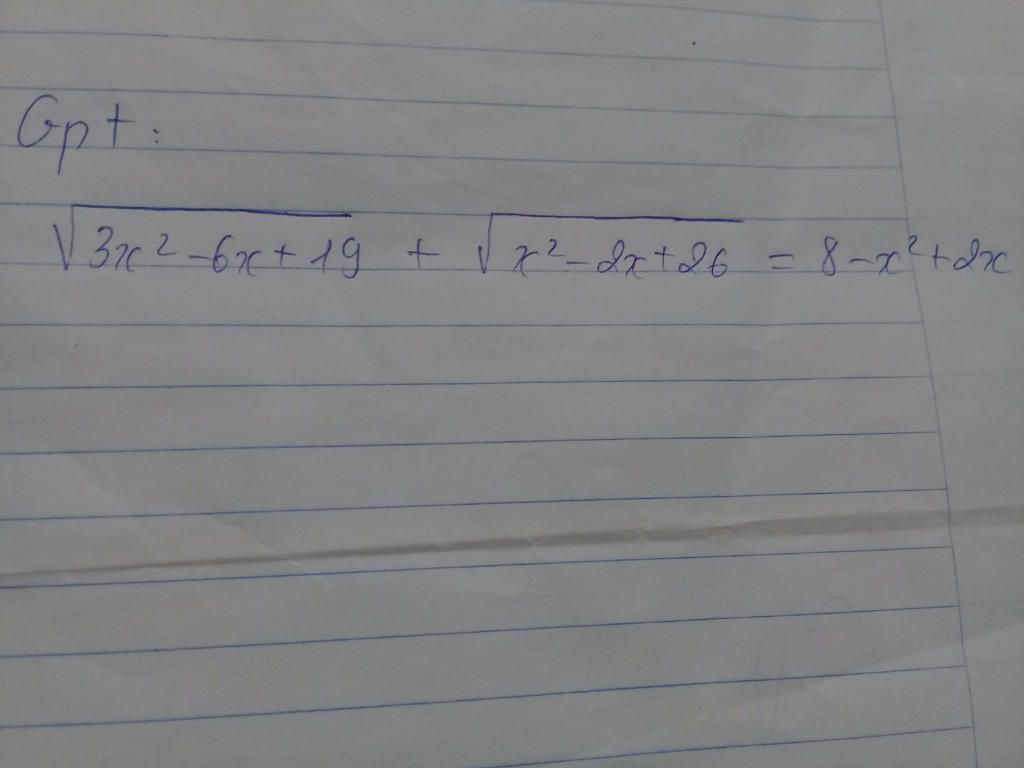 Gpt:
√3x² - 6x + 19 + √x² - 2x + 26 = 8 - x² + 2x